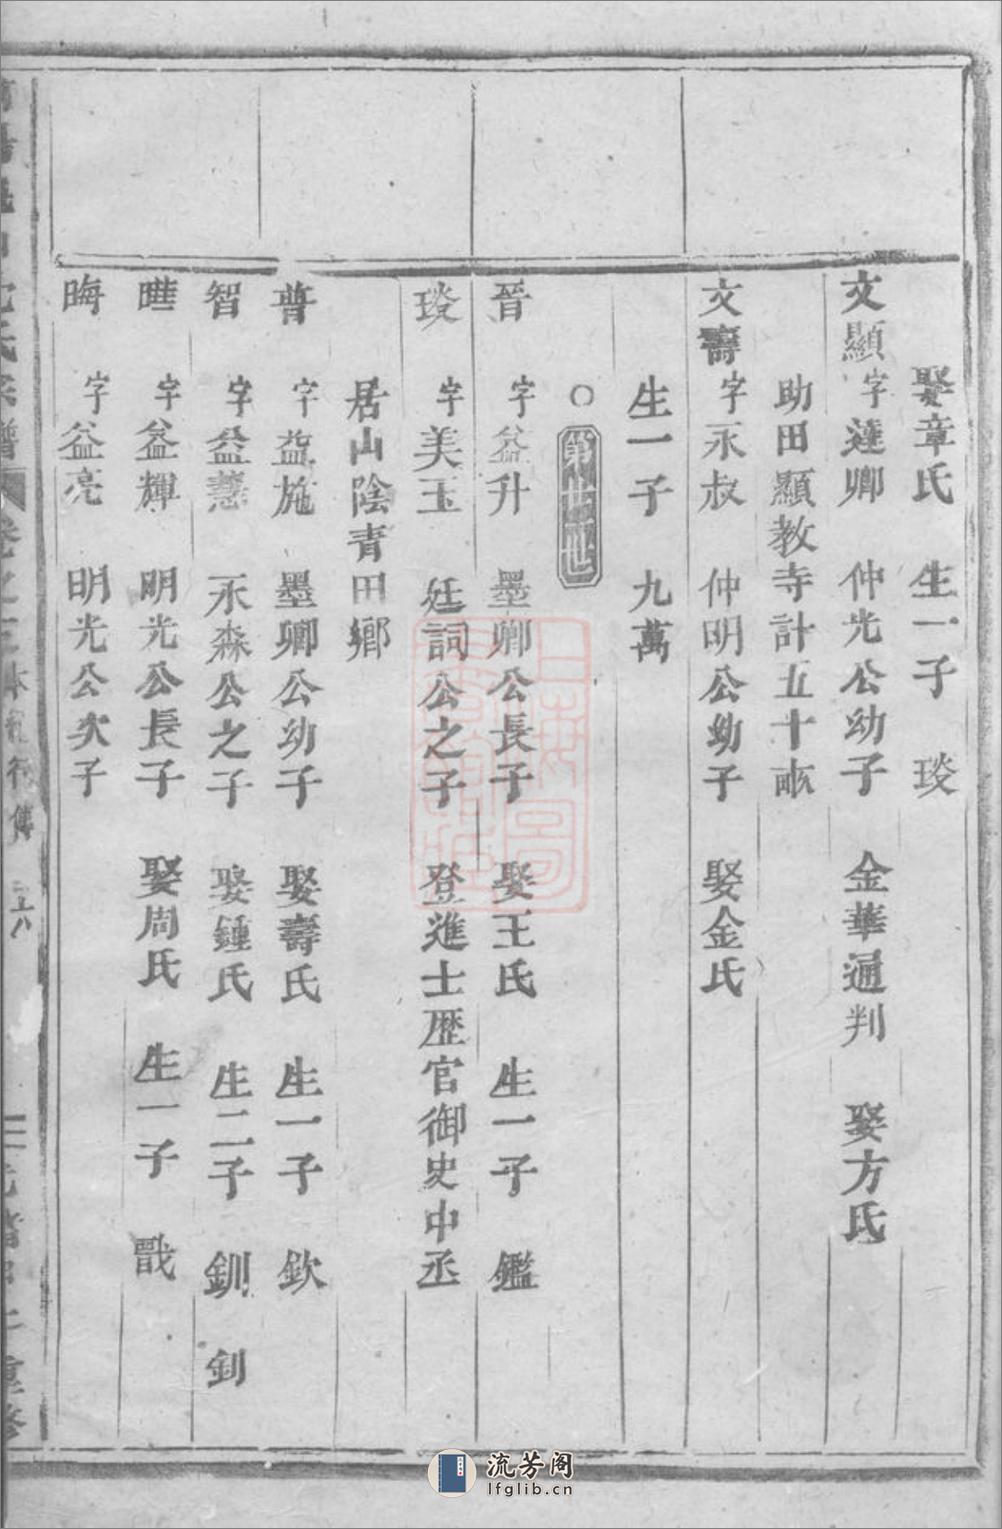 娶章氏 生一子 琰
文顯 字達卿 仲光公幼子 金華通判 娶方氏
助田顯教寺計五十畝
文壽 字永叔 仲明公幼子 娶金氏
生一子 九萬
○第廿世
晉 字益升 墨卿公長子 娶王氏 生一子 鑑
琰 字美玉 廷詞公之子 登進士歷官御史中丞
居山陰青田鄉
普 字益施 墨卿公幼子 娶壽氏 生一子 欽
智 字益慧 永森公之子 娶鍾氏 生二子 釧 釗
曄 字益輝 明光公長子 娶周氏 生一子 戩
晦 字益亮 明光公次子
氏宗譜 卷之 行傳
重修
流芳阁
lfglib.cn